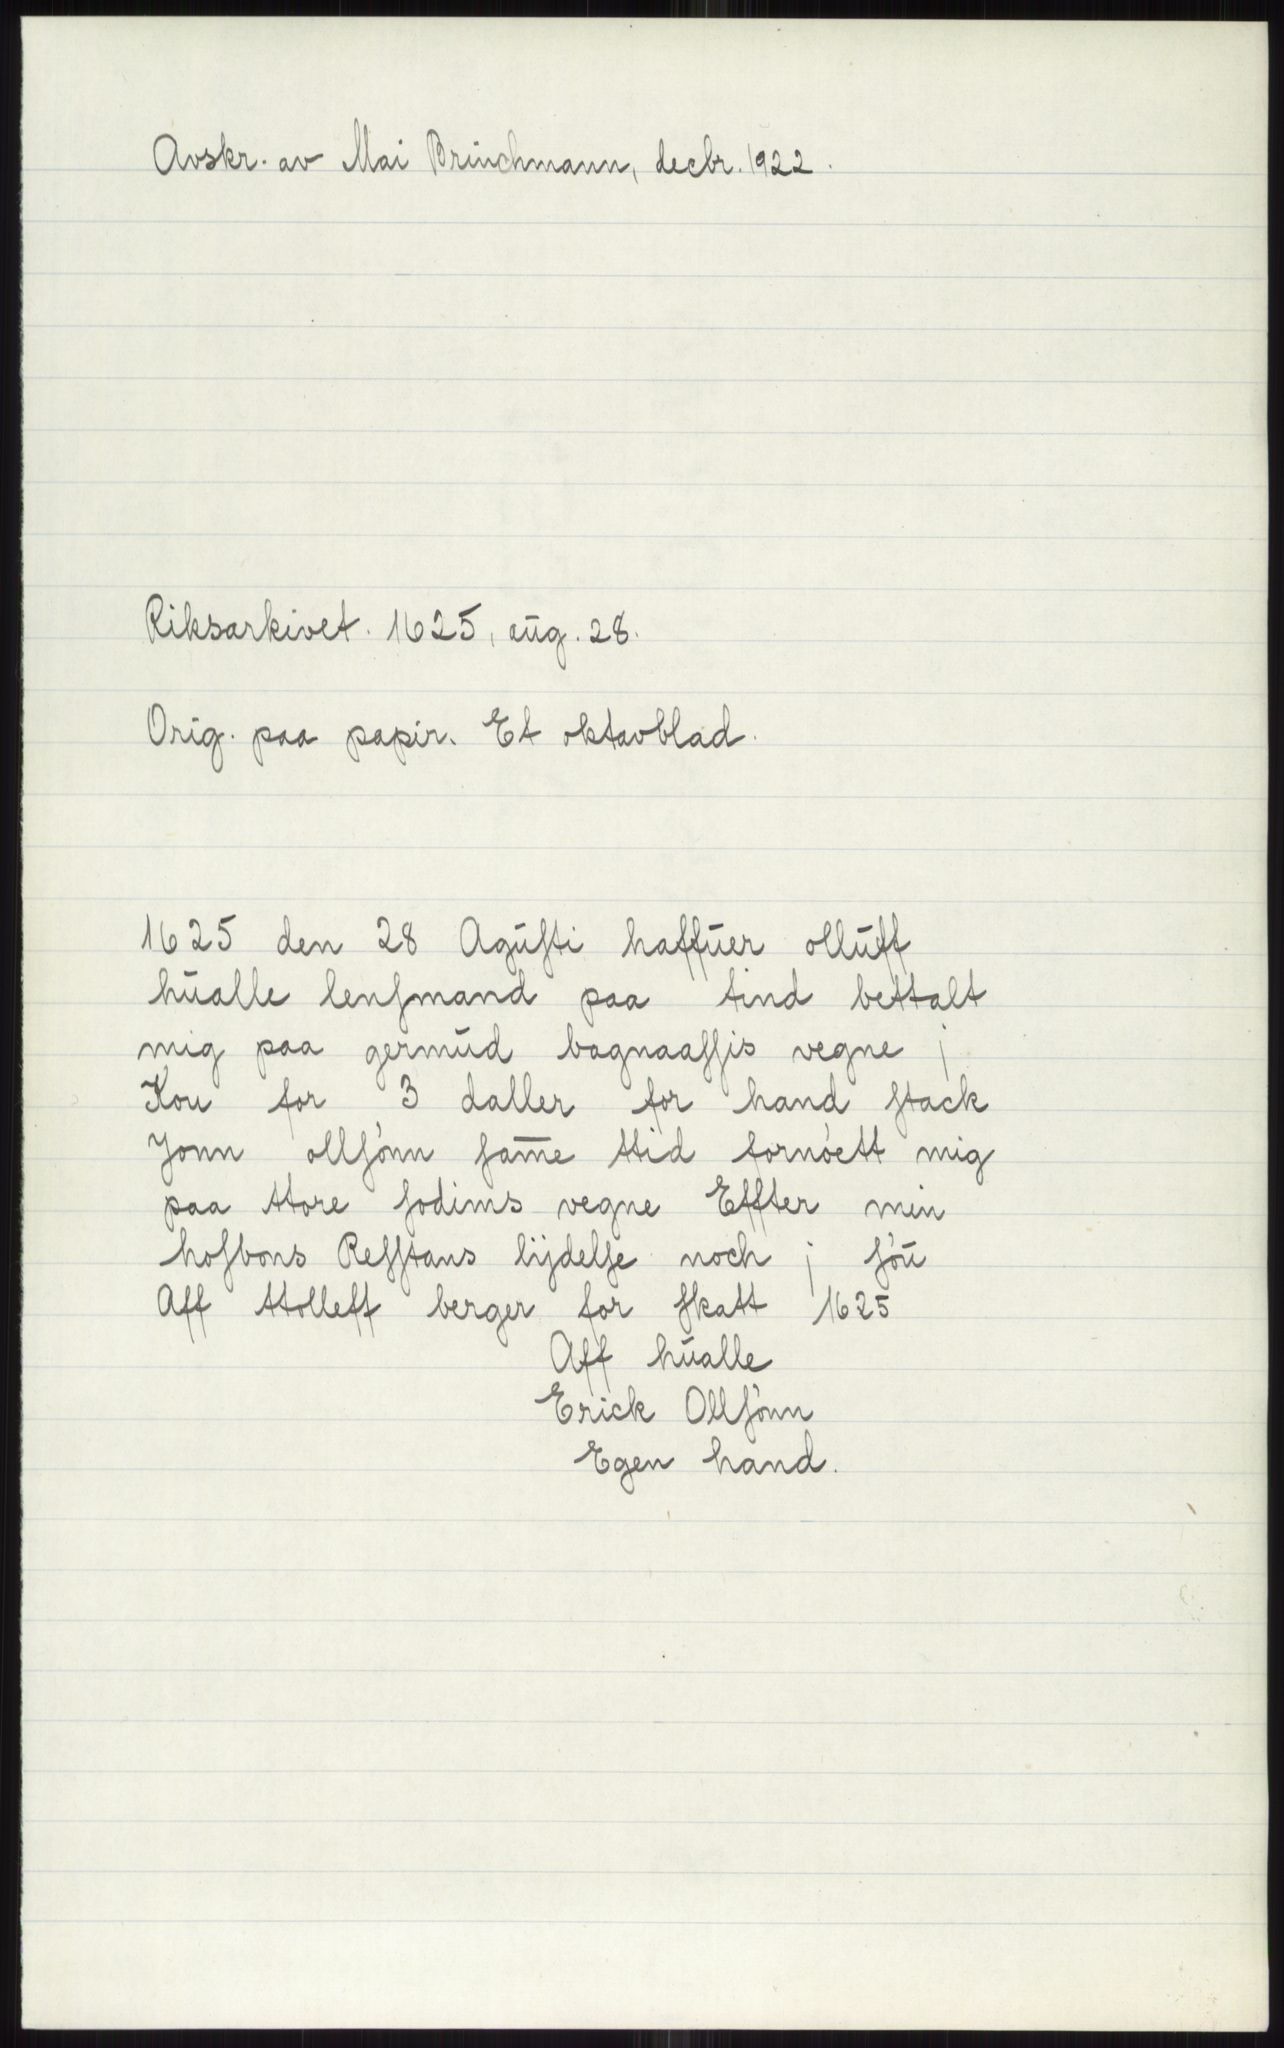 Avskr. av Mai Brünchmann, decbr. 1922.
Riksarkivet. 1625, aug. 28.
Orig. paa papir. Et oktavblad.
1625 den 28 Agusti haffuer olluff
hualle lensmand paa tind bettalt
mig paa germud bagnaassis vegne j
Kou for 3 daller for hand stack
Jonn ollsónn sam̅e ttid fornóett mig
paa ttore sodims vegne Effter min
hosbons Resstans lijdelse noch j sóu
Aff ttolleff berger for skatt 1625
Aff hualle
Erick Ollsónn
Egen hand.